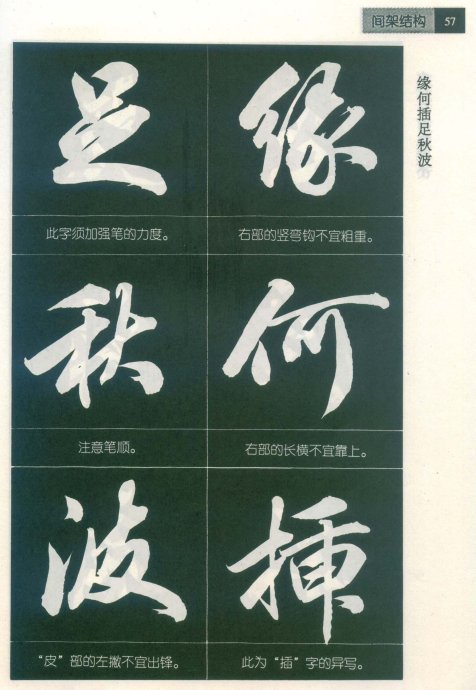 间架结构 57
缘何插足秋波
缘
右部的竖弯钩不宜粗重。
何
右部的长横不宜靠上。
插
此为“插”字的异写。
足
此字须加强笔的力度。
秋
注意笔顺。
波
“皮”部的左撇不宜出锋。